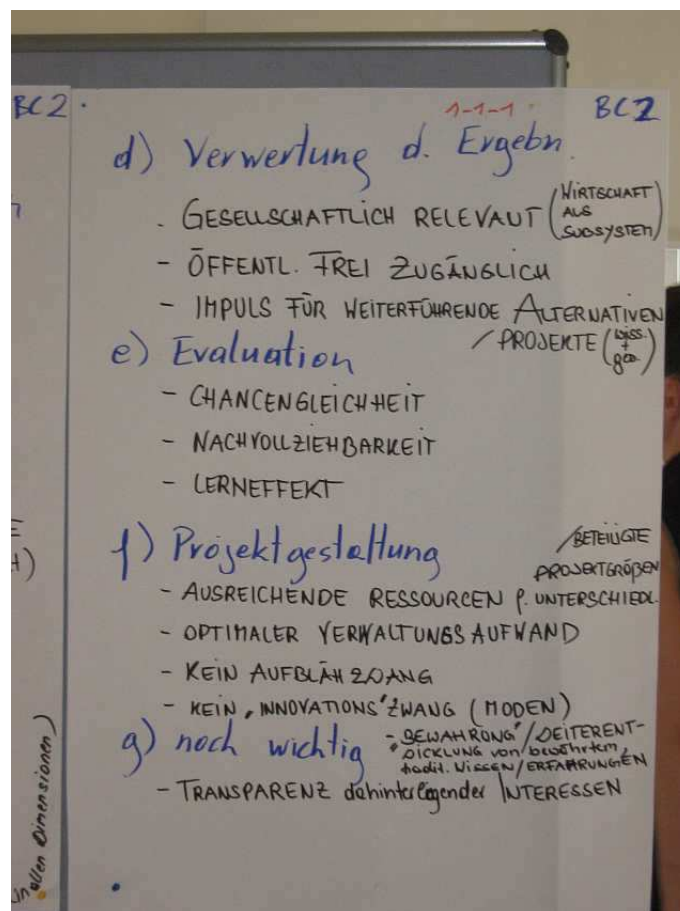 BC2
1-1-1
BC2
d) Verwertung d. Ergebn.
. GESELLSCHAFTLICH RELEVANT (WIRTSCHAFT
ALS
SUBSYSTEM)
- ÖFFENTL. FREI ZUGÄNGLICH
- IMPULS FÜR WEITERFÜHRENDE ALTERNATIVEN
/ PROJEKTE (wiss.
+
ges.)
e) Evaluation
- CHANCENGLEICHHEIT
- NACHVOLLZIEHBARKEIT
- LERNEFFEKT
f) Projektgestaltung
/BETEILIGTE
PROJEKTGRÖßEN
- AUSREICHENDE RESSOURCEN f. UNTERSCHIEDL.
- OPTIMALER VERWALTUNGSAUFWAND
- KEIN AUFBLÄHZWANG
- KEIN "INNOVATIONS"ZWANG (MODEN)
g) noch wichtig
- "BEWAHRUNG"/WEITERENT-
WICKLUNG von bewährtem,
tradit. WISSEN/ERFAHRUNGEN
- TRANSPARENZ dahinterliegender INTERESSEN
in allen Dimensionen)